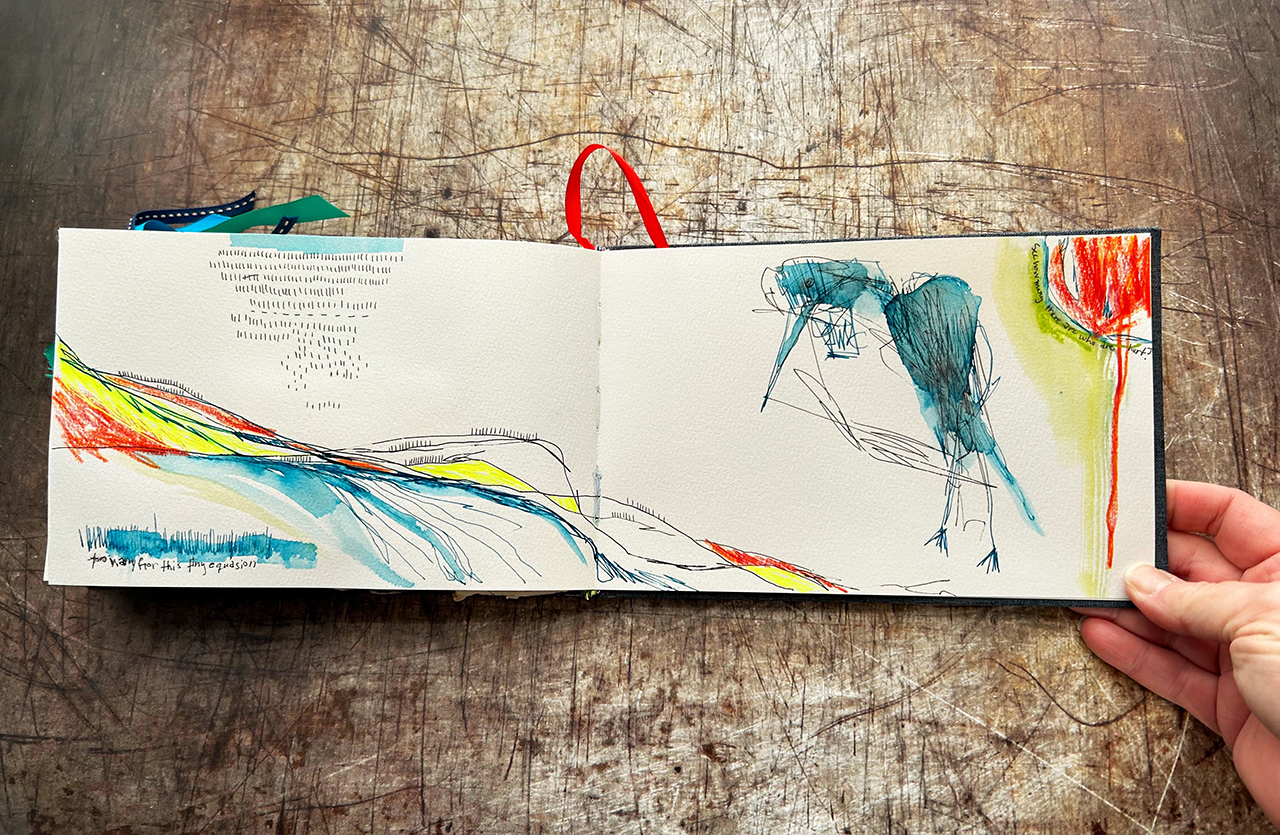 too many for this tiny equasion
how many there are who are